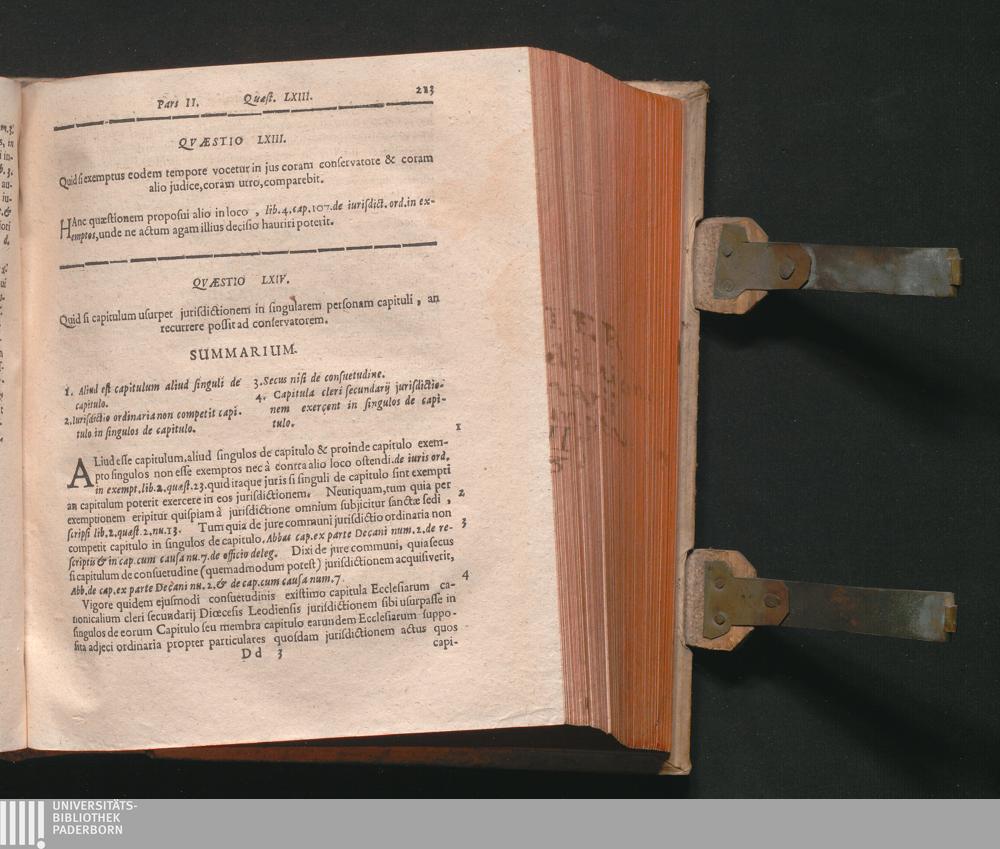 Pars II. Quæst. LXIII. 213
QVÆSTIO LXIII.
Quid si exemptus eodem tempore vocetur in jus coram conservatore & coram
alio judice, coram utro, comparebit.
HAnc quæstionem proposui alio in loco, lib.4.cap.107.de iurisdict.ord.in ex-
emptos, unde ne actum agam illius decisio hauriri poterit.
QVÆSTIO LXIV.
Quid si capitulum usurpet jurisdictionem in singularem personam capituli, an
recurrere possit ad conservatorem.
SUMMARIUM.
1. Aliud est capitulum aliud singuli de
capitulo.
2. Iurisdictio ordinaria non competit capi-
tulo in singulos de capitulo.
3. Secus nisi de consuetudine.
4. Capitula cleri secundarij jurisdictio-
nem exerçent in singulos de capi-
tulo.
ALiud esse capitulum, aliud singulos de capitulo & proinde capitulo exem- 1
pto singulos non esse exemptos nec à contra alio loco ostendi. de iuris ord.
in exempt. lib.2. quæst.23. quid itaque juris si singuli de capitulo sint exempti
an capitulum poterit exercere in eos jurisdictionem. Neutiquam, tum quia per
exemptionem eripitur quispiam à jurisdictione omnium subjicitur sanctæ sedi, 2
scripsi lib.2. quæst.2. nu.13. Tum quia de jure communi jurisdictio ordinaria non
competit capitulo in singulos de capitulo. Abbas cap. ex parte Decani num.2. de re- 3
scriptis & in cap. cum causa nu.7. de officio deleg. Dixi de jure communi, quia secus
si capitulum de consuetudine (quemadmodum potest) jurisdictionem acquisiverit,
Abb. de cap. ex parte Deçani nu.2. & de cap. cum causa num.7.
Vigore quidem ejusmodi consuetudinis existimo capitula Ecclesiarum ca- 4
nonicalium cleri secundarij Diœcesis Leodiensis jurisdictionem sibi usurpasse in
singulos de eorum Capitulo seu membra capitulo earundem Ecclesiarum suppo-
sita adjeci ordinaria propter particulares quosdam jurisdictionem actus quos
Dd 3 capi-
UNIVERSITÄTS-
BIBLIOTHEK
PADERBORN